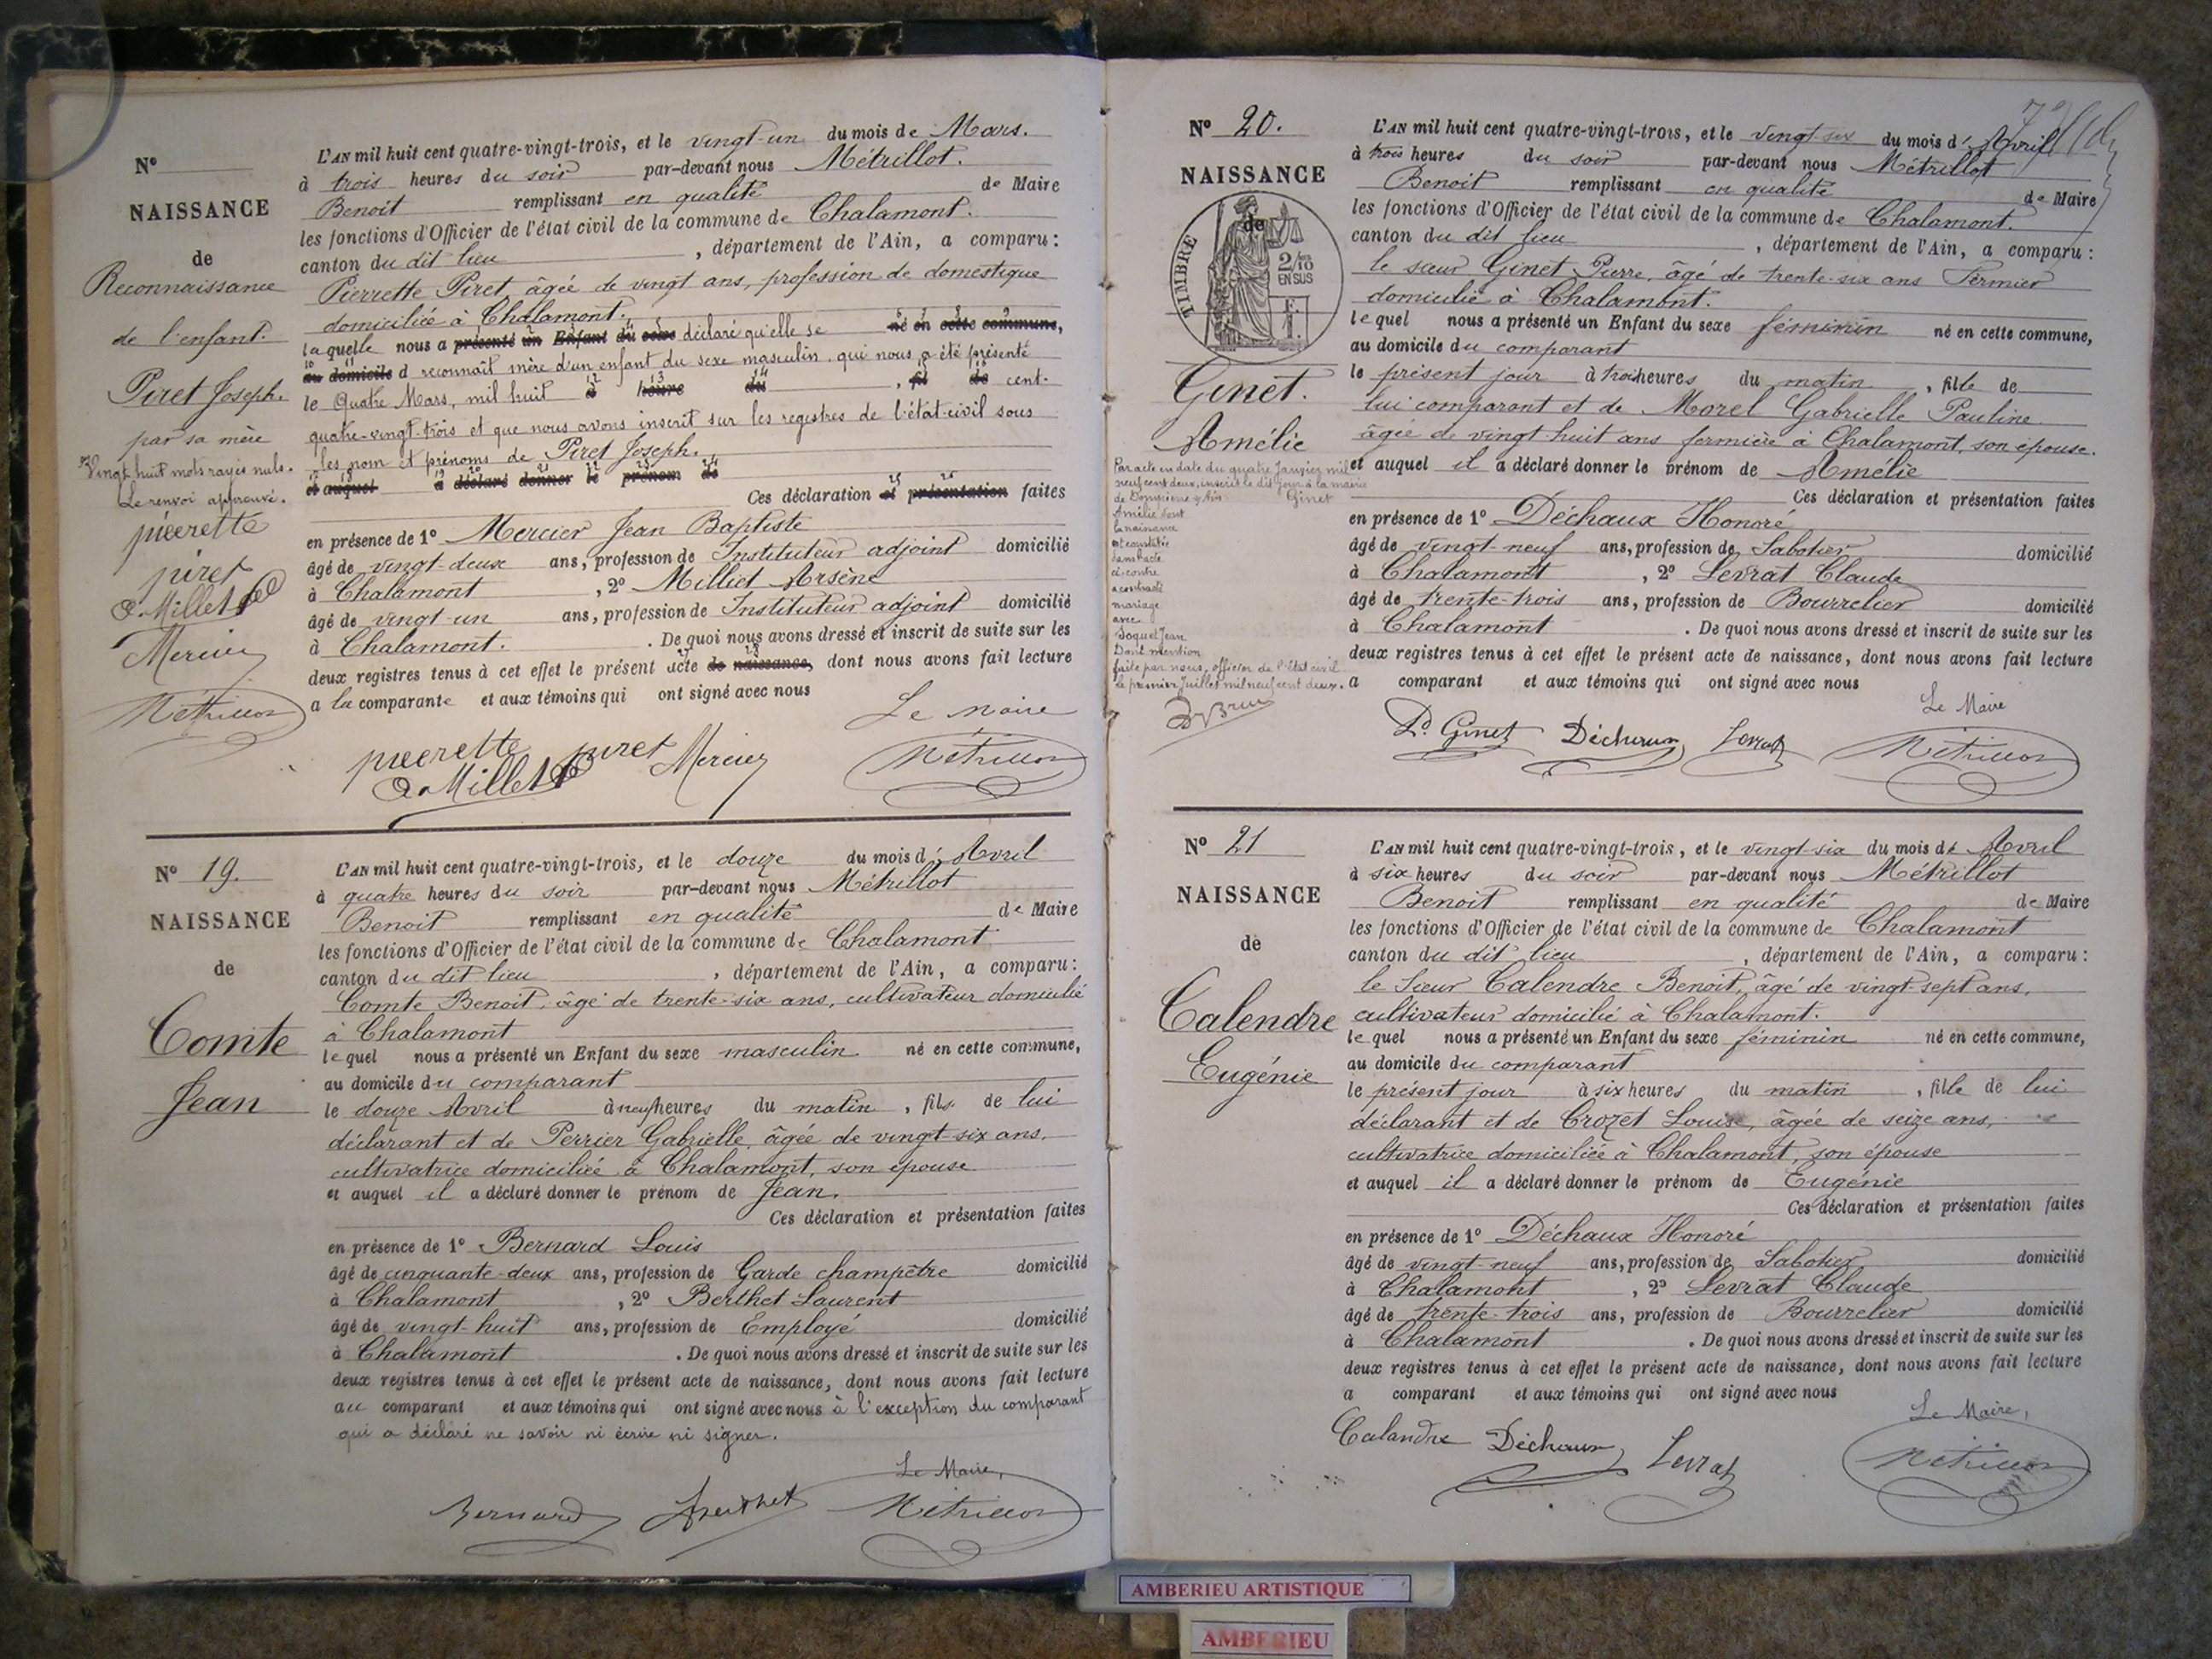 N°
NAISSANCE
de
Reconnaissance
de l'enfant.
Piret Joseph.
par sa mère
Vingt huit mots rayés nuls.
Le renvoi approuvé.
pierrette
piret
A. Millet
Mercier
Métrillot
L'AN mil huit cent quatre-vingt-trois, et le vingt-un du mois de Mars.
à trois heures du soir par-devant nous Métrillot.
Benoit remplissant en qualité de Maire
les fonctions d'Officier de l'état civil de la commune de Chalamont.
canton du dit lieu , département de l'Ain, a comparu :
Pierrette Piret âgée de vingt ans, profession de domestique
domiciliée à Chalamont.
laquelle nous a présenté un Enfant du sexe déclaré qu'elle se né en cette commune,
au domicile d reconnait mère d'un enfant du sexe masculin, qui nous a été présenté
le Quatre Mars, mil huit à heure du , fil de cent-
quatre-vingt-trois et que nous avons inscrit sur les registres de l'état-civil sous
les nom et prénoms de Piret Joseph.
et auquel a déclaré donner le prénom de
Ces déclaration et présentation faites
en présence de 1° Mercier Jean Baptiste
âgé de vingt-deux ans, profession de Instituteur adjoint domicilié
à Chalamont , 2° Milliet Arsène
âgé de vingt-un ans, profession de Instituteur adjoint domicilié
à Chalamont. . De quoi nous avons dressé et inscrit de suite sur les
deux registres tenus à cet effet le présent acte de naissance, dont nous avons fait lecture
a la comparante et aux témoins qui ont signé avec nous
Le maire
pierrette piret Mercier
A. Millet Métrillot
N° 19.
NAISSANCE
de
Comte
Jean
L'AN mil huit cent quatre-vingt-trois, et le douze du mois d'Avril
à quatre heures du soir par-devant nous Métrillot
Benoit remplissant en qualité de Maire
les fonctions d'Officier de l'état civil de la commune de Chalamont
canton du dit lieu , département de l'Ain, a comparu :
Comte Benoit, âgé de trente-six ans, cultivateur domicilié
à Chalamont
lequel nous a présenté un Enfant du sexe masculin né en cette commune,
au domicile du comparant
le douze Avril à neuf heures du matin , fils de lui
déclarant et de Perrier Gabrielle, âgée de vingt-six ans.
cultivatrice domiciliée à Chalamont, son épouse
et auquel il a déclaré donner le prénom de Jean.
Ces déclaration et présentation faites
en présence de 1° Bernard Louis
âgé de cinquante-deux ans, profession de Garde champêtre domicilié
à Chalamont , 2° Berthet Laurent
âgé de vingt-huit ans, profession de Employé domicilié
à Chalamont . De quoi nous avons dressé et inscrit de suite sur les
deux registres tenus à cet effet le présent acte de naissance, dont nous avons fait lecture
au comparant et aux témoins qui ont signé avec nous à l'exception du comparant
qui a déclaré ne savoir ni écrire ni signer.
Le Maire,
Bernard Berthet Métrillot
N° 20.
NAISSANCE
de
TIMBRE
2/10
EN SUS
Ginet.
Amélie
Par acte en date du quatre Janvier mil
neuf cent deux, inscrit le dit jour à la mairie
Ginet
Amélie dont
la naissance
est constatée
dans l'acte
ci-contre
a contracté
mariage
avec
Soquet Jean
Dont mention
faite par nous, officier de l'état civil
le premier Juillet mil neuf cent deux.
L'AN mil huit cent quatre-vingt-trois, et le vingt-six du mois d'Avril
à trois heures du soir par-devant nous Métrillot
Benoit remplissant en qualité de Maire
les fonctions d'Officier de l'état civil de la commune de Chalamont.
canton du dit lieu , département de l'Ain, a comparu :
le sieur Ginet Pierre, âgé de trente-six ans Fermier
domicilié à Chalamont.
lequel nous a présenté un Enfant du sexe féminin né en cette commune,
au domicile du comparant
le présent jour à trois heures du matin , fille de
lui comparant et de Morel Gabrielle Pauline
âgée de vingt huit ans fermière à Chalamont, son épouse.
et auquel il a déclaré donner le prénom de Amélie
Ces déclaration et présentation faites
en présence de 1° Déchaux Honoré
âgé de vingt-neuf ans, profession de Sabotier domicilié
à Chalamont , 2° Levrat Claude
âgé de trente-trois ans, profession de Bourrelier domicilié
à Chalamont . De quoi nous avons dressé et inscrit de suite sur les
deux registres tenus à cet effet le présent acte de naissance, dont nous avons fait lecture
a comparant et aux témoins qui ont signé avec nous
Le Maire
P. Ginet Déchaux Levrat Métrillot
N° 21
NAISSANCE
de
Calendre
Eugénie
L'AN mil huit cent quatre-vingt-trois, et le vingt-six du mois d' Avril
à six heures du soir par-devant nous Métrillot
Benoit remplissant en qualité de Maire
les fonctions d'Officier de l'état civil de la commune de Chalamont
canton du dit lieu , département de l'Ain, a comparu :
le Sieur Calendre Benoit, âgé de vingt-sept ans,
cultivateur domicilié à Chalamont.
lequel nous a présenté un Enfant du sexe féminin né en cette commune,
au domicile du comparant
le présent jour à six heures du matin , fille de lui
déclarant et de Crozet Louise, âgée de seize ans,
cultivatrice domiciliée à Chalamont, son épouse
et auquel il a déclaré donner le prénom de Eugénie
Ces déclaration et présentation faites
en présence de 1° Déchaux Honoré
âgé de vingt-neuf ans, profession de Sabotier domicilié
à Chalamont , 2° Levrat Claude
âgé de trente-trois ans, profession de Bourrelier domicilié
à Chalamont . De quoi nous avons dressé et inscrit de suite sur les
deux registres tenus à cet effet le présent acte de naissance, dont nous avons fait lecture
a comparant et aux témoins qui ont signé avec nous
Le Maire,
Calandre Déchaux Levrat Métrillot
AMBERIEU ARTISTIQUE
AMBERIEU